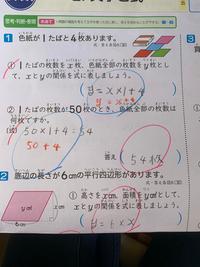 思考・判断・表現
1 色紙が1たばと4枚あります。
① 1たばの枚数をx枚、色紙全部の枚数をy枚として、xとyの関係を式に表しましょう。
y = x×1+4
② 1たばの枚数が50枚のとき、色紙全部の枚数は何枚ですか。
(式) 50×1+4=54
50+4
答え (54枚)
2 底辺の長さが6cmの平行四辺形があります。
① 高さをxcm、面積をycm²として、xとyの関係を式に表しましょう。
ycm²
xcm
6cm
y=6×x
3